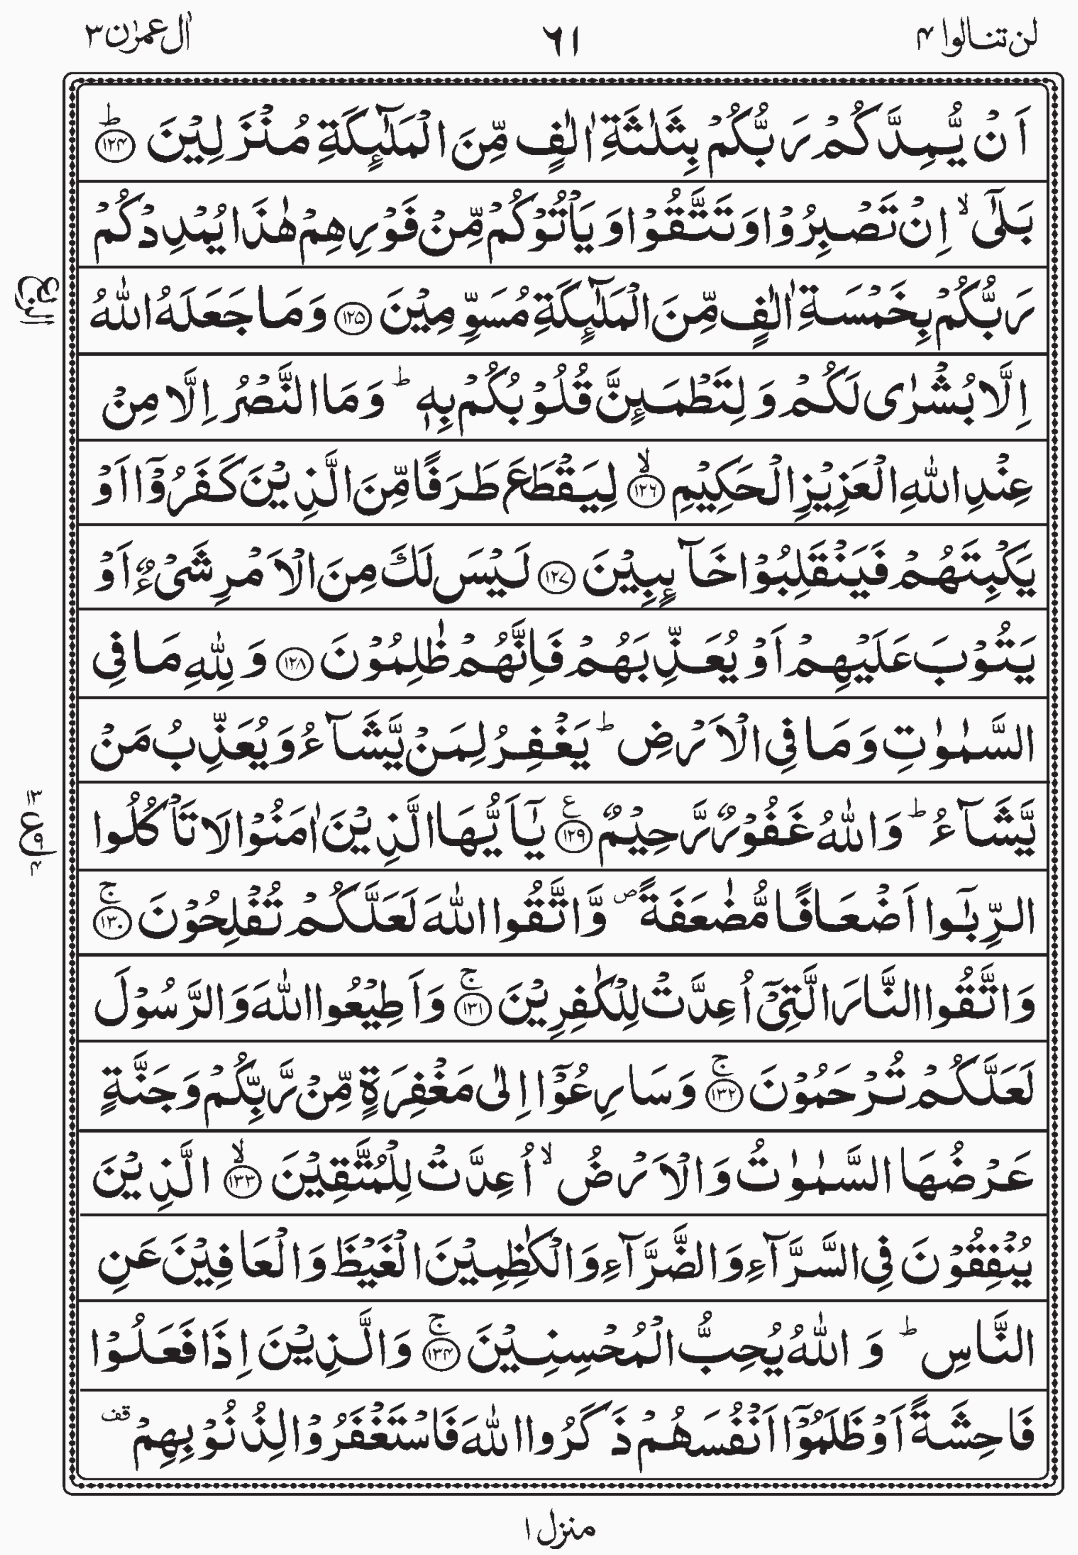 لن تنالوا ۴
۶۱
اٰل عمرٰن ۳
اَنْ يُّمِدَّكُمْ رَبُّكُمْ بِثَلٰثَةِ اٰلٰفٍ مِّنَ الْمَلٰٓئِكَةِ مُنْزَلِيْنَ ؕ ﴿۱۲۴﴾
بَلٰٓى ۙ اِنْ تَصْبِرُوْا وَتَتَّقُوْا وَيَاْتُوْكُمْ مِّنْ فَوْرِهِمْ هٰذَا يُمْدِدْكُمْ
رَبُّكُمْ بِخَمْسَةِ اٰلٰفٍ مِّنَ الْمَلٰٓئِكَةِ مُسَوِّمِيْنَ ﴿۱۲۵﴾ وَمَا جَعَلَهُ اللّٰهُ
الربع
اِلَّا بُشْرٰى لَكُمْ وَلِتَطْمَئِنَّ قُلُوْبُكُمْ بِهٖ ؕ وَمَا النَّصْرُ اِلَّا مِنْ
عِنْدِ اللّٰهِ الْعَزِيْزِ الْحَكِيْمِ ۙ ﴿۱۲۶﴾ لِيَقْطَعَ طَرَفًا مِّنَ الَّذِيْنَ كَفَرُوْٓا اَوْ
يَكْبِتَهُمْ فَيَنْقَلِبُوْا خَآئِبِيْنَ ﴿۱۲۷﴾ لَيْسَ لَكَ مِنَ الْاَمْرِ شَىْءٌ اَوْ
يَتُوْبَ عَلَيْهِمْ اَوْ يُعَذِّبَهُمْ فَاِنَّهُمْ ظٰلِمُوْنَ ﴿۱۲۸﴾ وَلِلّٰهِ مَا فِى
السَّمٰوٰتِ وَمَا فِى الْاَرْضِ ؕ يَغْفِرُ لِمَنْ يَّشَآءُ وَيُعَذِّبُ مَنْ
يَّشَآءُ ؕ وَاللّٰهُ غَفُوْرٌ رَّحِيْمٌ ﴿۱۲۹﴾ ع يٰٓاَيُّهَا الَّذِيْنَ اٰمَنُوْا لَا تَاْكُلُوا
۱۳
ع ۹
۴
الرِّبٰٓوا اَضْعَافًا مُّضٰعَفَةً ص وَّاتَّقُوا اللّٰهَ لَعَلَّكُمْ تُفْلِحُوْنَ ۚ ﴿۱۳۰﴾
وَاتَّقُوا النَّارَ الَّتِىْٓ اُعِدَّتْ لِلْكٰفِرِيْنَ ۚ ﴿۱۳۱﴾ وَاَطِيْعُوا اللّٰهَ وَالرَّسُوْلَ
لَعَلَّكُمْ تُرْحَمُوْنَ ۚ ﴿۱۳۲﴾ وَسَارِعُوْٓا اِلٰى مَغْفِرَةٍ مِّنْ رَّبِّكُمْ وَجَنَّةٍ
عَرْضُهَا السَّمٰوٰتُ وَالْاَرْضُ ۙ اُعِدَّتْ لِلْمُتَّقِيْنَ ۙ ﴿۱۳۳﴾ الَّذِيْنَ
يُنْفِقُوْنَ فِى السَّرَّآءِ وَالضَّرَّآءِ وَالْكٰظِمِيْنَ الْغَيْظَ وَالْعَافِيْنَ عَنِ
النَّاسِ ؕ وَاللّٰهُ يُحِبُّ الْمُحْسِنِيْنَ ۚ ﴿۱۳۴﴾ وَالَّذِيْنَ اِذَا فَعَلُوْا
فَاحِشَةً اَوْ ظَلَمُوْٓا اَنْفُسَهُمْ ذَكَرُوا اللّٰهَ فَاسْتَغْفَرُوْا لِذُنُوْبِهِمْ قف
منزل ۱